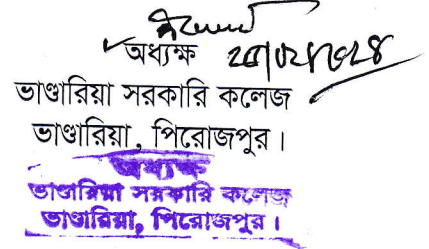 অধ্যক্ষ
ভাণ্ডারিয়া সরকারি কলেজ
ভাণ্ডারিয়া, পিরোজপুর।
অধ্যক্ষ
ভাণ্ডারিয়া সরকারি কলেজ
ভাণ্ডারিয়া, পিরোজপুর।